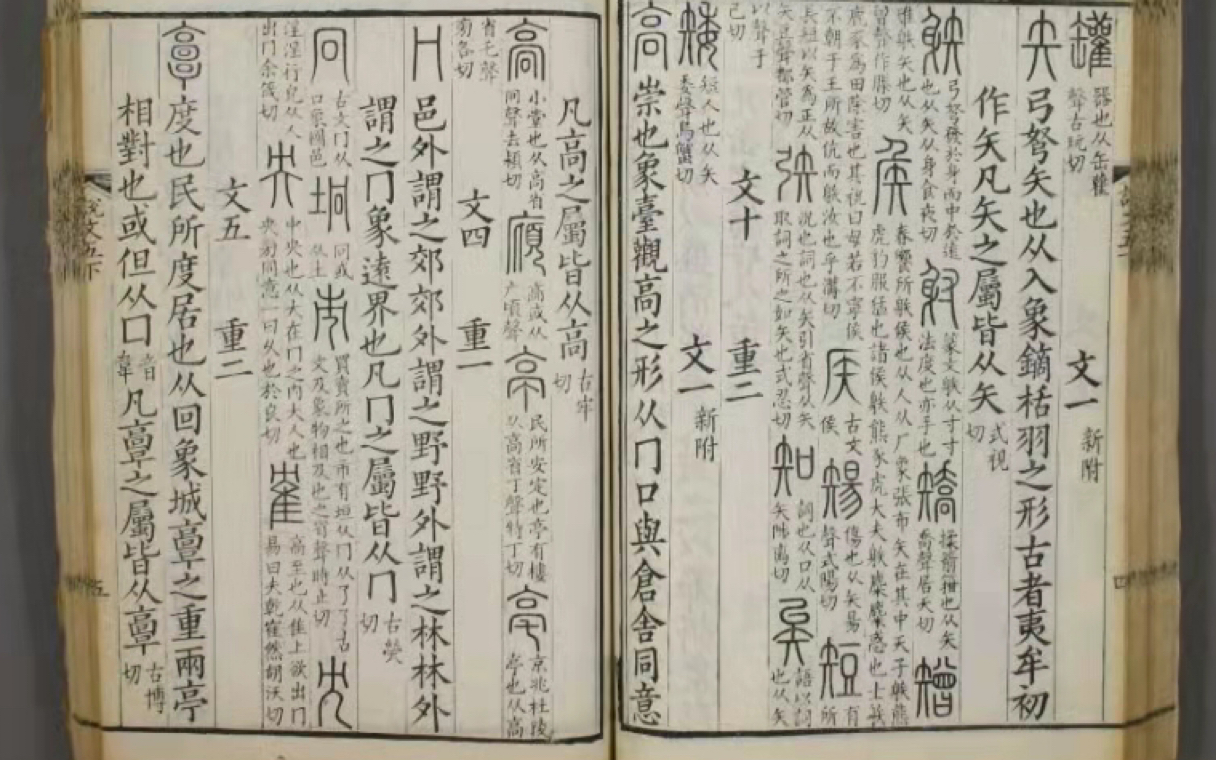 罐 器也从缶雚聲古玩切 文一 新附
矢 弓弩矢也从入象鏑栝羽之形古者夷牟初
作矢凡矢之屬皆从矢 式視切
䠶 弓弩發於身而中於遠也从矢从身食夜切 射 篆文䠶从寸寸法度也亦手也 矯 揉箭箝也从矢喬聲居夭切 矰
隿䠶矢也从矢曾聲作滕切 矦 春饗所䠶侯也从人从厂象張布矢在其中天子䠶熊虎豹服猛也諸侯䠶熊豕虎大夫䠶麋麋惑也士䠶
鹿豕爲田除害也其祝曰毋若不寧侯不朝于王所故伉而䠶汝也乎溝切 𥎦 古文侯 𥏻 傷也从矢昜聲式陽切 短 有所
長短以矢爲正从矢豆聲都管切 矤 況也詞也从矢引省聲从矢取詞之所之如矢也式忍切 知 詞也从口从矢陟离切 矣 語以詞也从矢
以聲于已切 文十 重二
矮 短人也从矢委聲烏蟹切 文一 新附
高 崇也象臺觀高之形从冂口與倉舍同意
凡高之屬皆从高 古牢切
高 小堂也从高省冋聲去潁切 廎 高或从广頃聲 亭 民所安定也亭有樓从高省丁聲特丁切 亳 京兆杜陵亭也从高
省乇聲旁各切 文四 重一
冂 邑外謂之郊郊外謂之野野外謂之林林外
謂之冂象遠界也凡冂之屬皆从冂 古熒切
冋 古文冂从口象國邑 坰 冋或从土 市 買賣所之也市有垣从冂从了了古文及象物相及也之省聲時止切 冘
淫淫行皃从人出冂余箴切 央 中央也从大在冂之内大人也央㫄同意一曰久也於良切 隺 高至也从隹上欲出冂易曰夫乾隺然胡沃切
文五 重二
𩫏 度也民所度居也从回象城𩫏之重兩亭
相對也或但从口 音韋 凡𩫏之屬皆从𩫏 古博切
說文五下